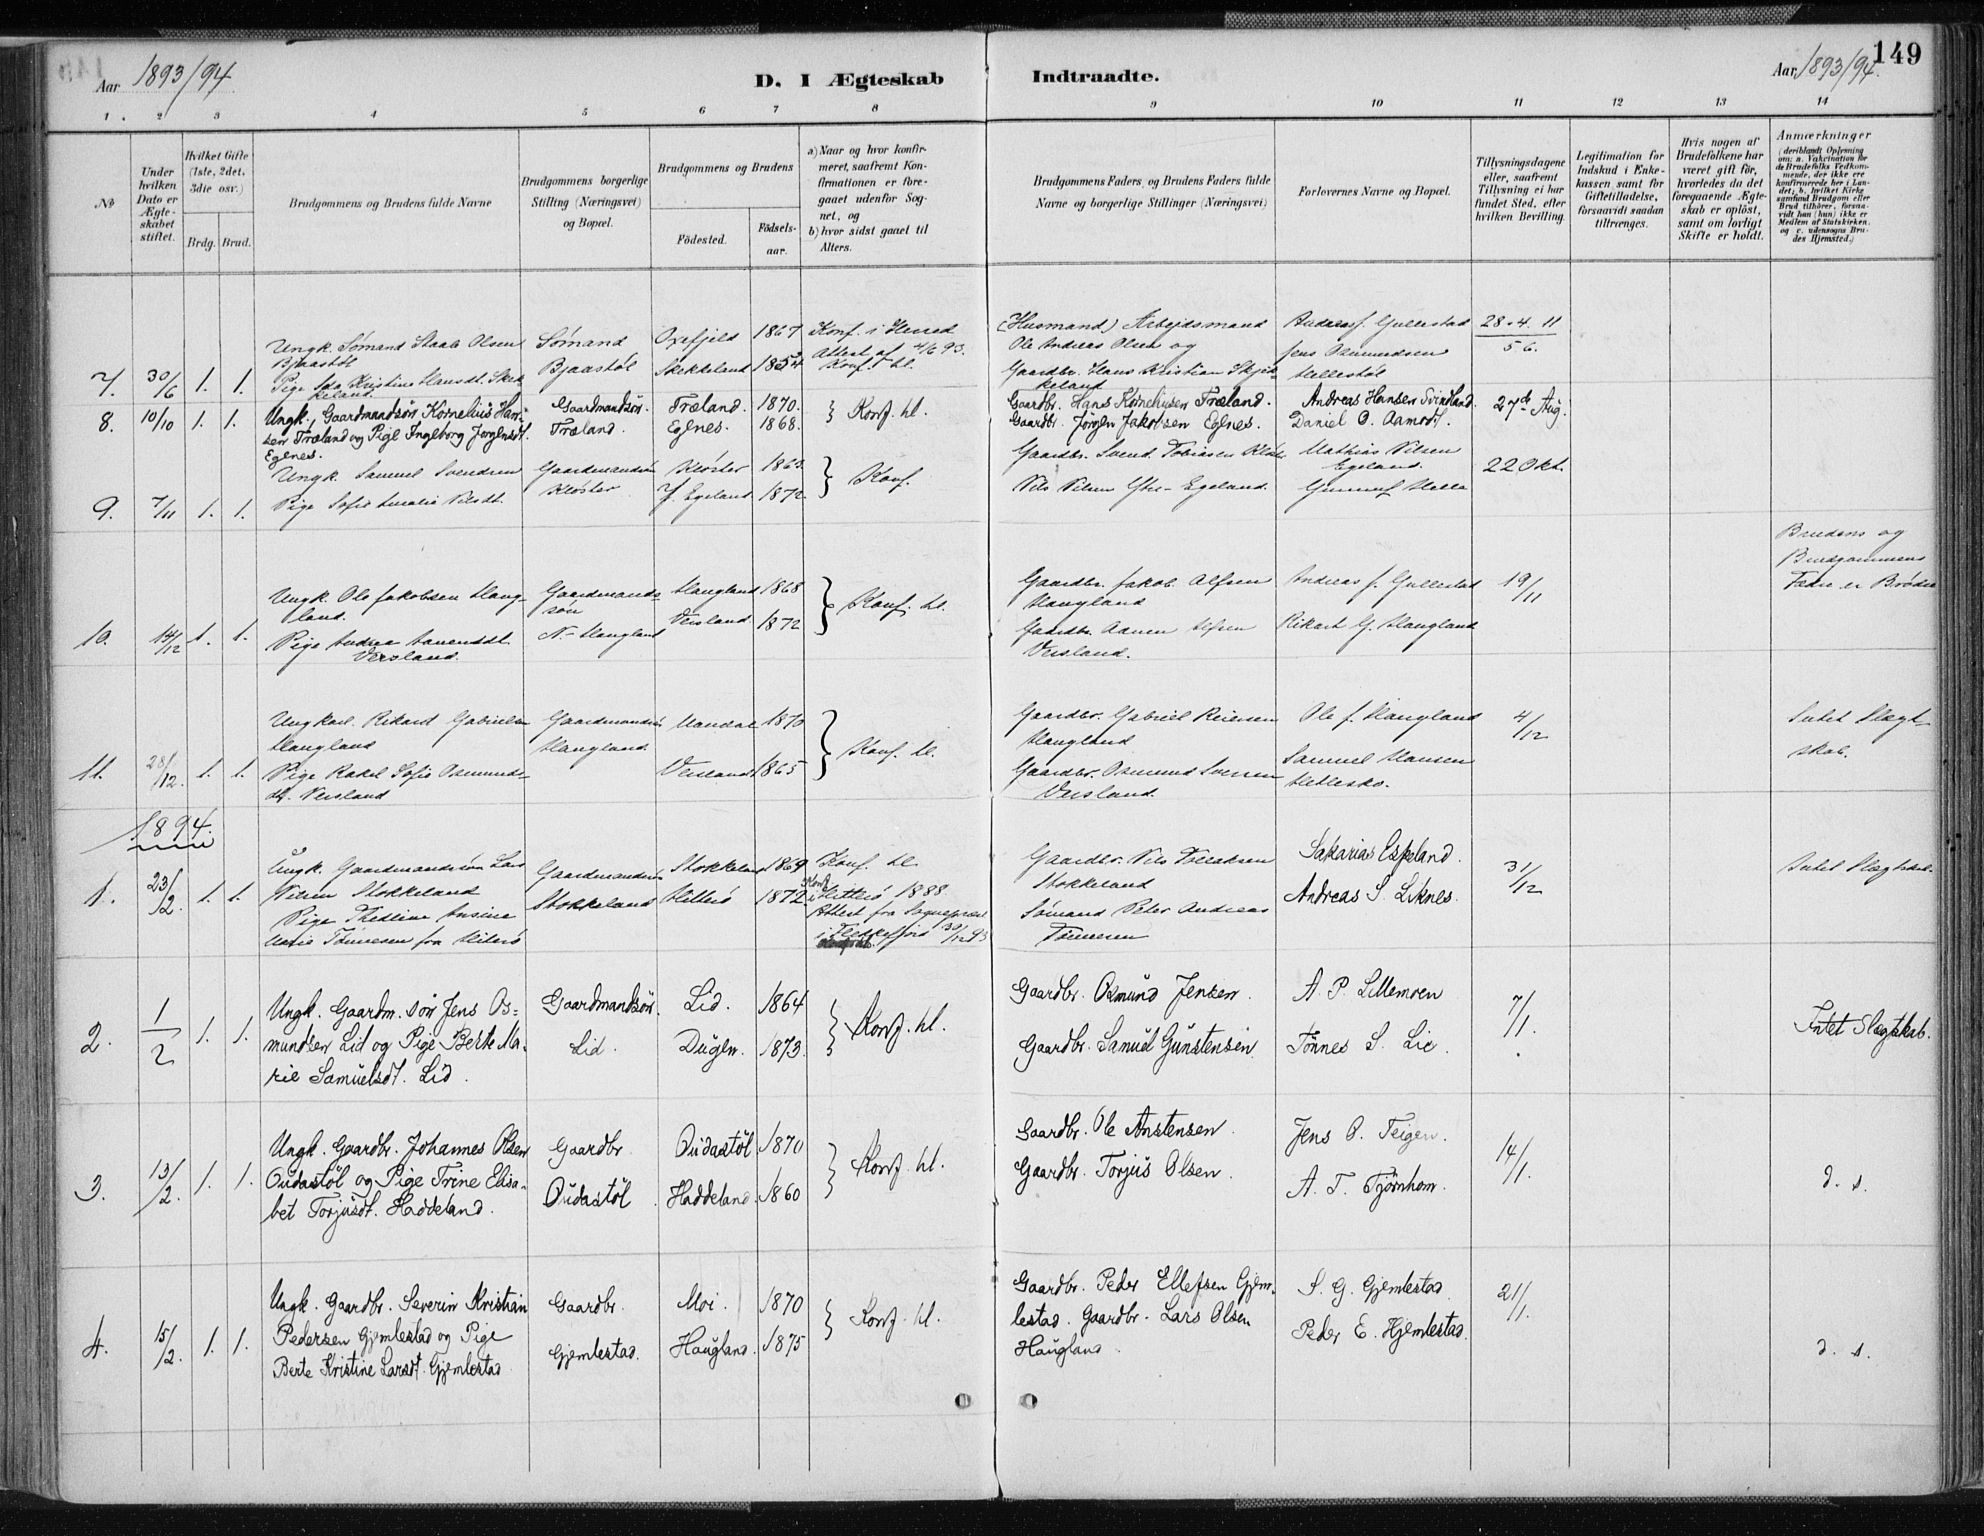 Aar 1893/94
D. I Ægteskab
Indtraadte.
Aar 1893/94.
149
1. 2 3 4 5 6 7 8
9 10 11 12 13 14
No
Under hvilken Dato er Ægteskabet stiftet.
Hvilket Gifte (1ste, 2det, 3die osv.)
Brdg. Brud.
Brudgommens og Brudens fulde Navne
Brudgommens borgerlige Stilling (Næringsvei) og Bopæl.
Brudgommens og Brudens
Födested.
Födsels-aar.
a) Naar og hvor konfirmeret, saafremt Konfirmationen er foregaaet udenfor Sognet, og
b) hvor sidst gaaet til Alters.
Brudgommens Faders og Brudens Faders fulde Navne og borgerlige Stillinger (Næringsvei)
Forlovernes Navne og Bopæl.
Tillysningsdagene eller, saafremt Tillysning ei har fundet Sted, efter hvilken Bevilling.
Legitimation for Indskud i Enkekassen samt for Giftetilladelse, forsaavidt saadan tiltrænges.
Hvis nogen af Brudefolkene har været gift før, hvorledes da det foregaaende Ægteskab er oplöst, samt om lovligt Skifte er holdt.
Anmærkninger
(deriblandt Oplysning om: a. Vakcination for de Brudefolks Vedkommende, der ikke ere konfirmerede her i Landet; b. hvilket Kirkesamfund Brudgom eller Brud tilhörer, forsaavidt han (hun) ikke er Medlem af Statskirken, og c. udensogns Brudes Hjemsted.)
7. 30/6 1. 1.
Ungk. Sømand Staale Olsen
Bjaastøl
Pige Ida Kristine Hansdt. Skekkeland
Sømand
Bjaastøl
Oxefjeld 1867
Skekkeland
Konf. i Herred
Attest af 4/6 93.
Konf. hl.
(Husmand) Arbejdsmand
Ole Andreas Olsen og
Gaardbr. Hans Kristian Skjekkeland
Andreas J. Gullestad
Jens Osmundsen
Hellestøl
28.4. 11
56.
8. 10/10 1. 1.
Ungk., Gaardmandsön Kornelius Hansen Træland og Pige Ingeborg Jörgensdt. Egenes.
Gaardmandsön.
Træland.
Træland. 1870.
Egenes. 1868.
} Konf. hl.
Gaardbr. Hans Kornelïusen Træland.
Gaardbr. Jörgen Jakobsen Egenes.
Andreas Hansen Svindland.
Daniel O. Aamodt.
27de Aug.
9. 7/11 1. 1.
Ungk. Samuel Svendsen
Pige Sofie Amalie Nilsdt.
Gaardmandsön
Kløster
Kløster 1863.
Y. Egeland 1872.
} Konf.
Gaardbr. Svend Tobiasen Kløster
Nils Nilsen Ytre-Egeland.
Mathias Nilsen
Egeland.
22 Okt.
10. 14/12 1. 1.
Ungk. Ole Jakobsen Haugland.
Pige Andrea Aanensdt.
Versland.
Gaardmandssön
N. Haugland
Haugland 1868
Versland 1872
} Konf. hl.
Gaardbr. Jakob Alfsen
Haugland
Gaardbr. Aanen Alfsen
Versland.
Andreas J. Gullestad
Rikart G. Haugland
19/11
Brudens og
Brudgommens
Fædre er Brødre
11. 28/12. 1. 1.
Ungkarl. Rikard Gabrielsen
Haugland
Pige Rakel Sofie Osmundsdt. Versland
Gaardmandsön
Haugland.
Mandal 1870
Versland 1865
} Konf. hl.
Gaardbr. Gabriel Reiersen
Haugland
Gaardbr. Osmund Svensen
Versland.
Ole J. Haugland
Samuel Hansen
4/12
Intet Slægtskab.
1894.
1. 23/2. 1. 1.
Ungk. Gaardmandsön Lars
Nilsen Stokkeland
Pige Thedline Ansine
Marie Tönnesen fra Hitterö
Gaardmandsön
Stokkeland
Stokkeland 1869
Hitterö 1872
Konf. hl.
Konf. i Hitterö 1888.
Attest fra Sognepræst
i Flekkefjord 30/12 93
Gaardbr. Nils Tollaksen
Stokkeland
Sömand Peter Andreas
Tönnesen
Sakarias Espeland.
Andreas S. Liknes.
31/12
Intet Slægtskab.
2. 1/2 1. 1.
Ungk. Gaardm.sön Jens Osmundsen Lid og Pige Berte Marie Samuelsdt. Lid.
Gaardmandsön.
Lid.
Lid. 1864
Dugen. 1873.
} Konf. hl.
Gaardbr. Osmund Jensen.
Gaardbr. Samuel Gunstensen.
A. P. Lillemoen
Tönnes S. Lie.
7/1.
Intet Slægtskab.
3. 13/2. 1. 1.
Ungk. Gaardbr. Johannes Olsen
Oudastöl og Pige Trine Elisabet Torjusdt. Haddeland.
Gaardbr.
Oudastöl
Oudastöl 1870
Haddeland 1860
} Konf. hl.
Gaardbr. Ole Anstensen.
Gaardbr. Torjus Olsen.
Jens O. Teigen.
A. T. Tjörnhom.
14/1.
d. s.
4. 15/2. 1. 1.
Ungk. Gaardbr. Severin Kristian
Pedersen Gjemlestad og Pige
Berte Kristine Larsdt. Gjemlestad.
Gaardbr.
Gjemlestad.
Moi. 1870
Haugland. 1875
} Konf. hl.
Gaardbr. Peder Ellefsen Gjemlestad. Gaardbr. Lars Olsen
Haugland.
S. G. Gjemlestad
Peder E. Hjemlestad.
21/1.
d. s.